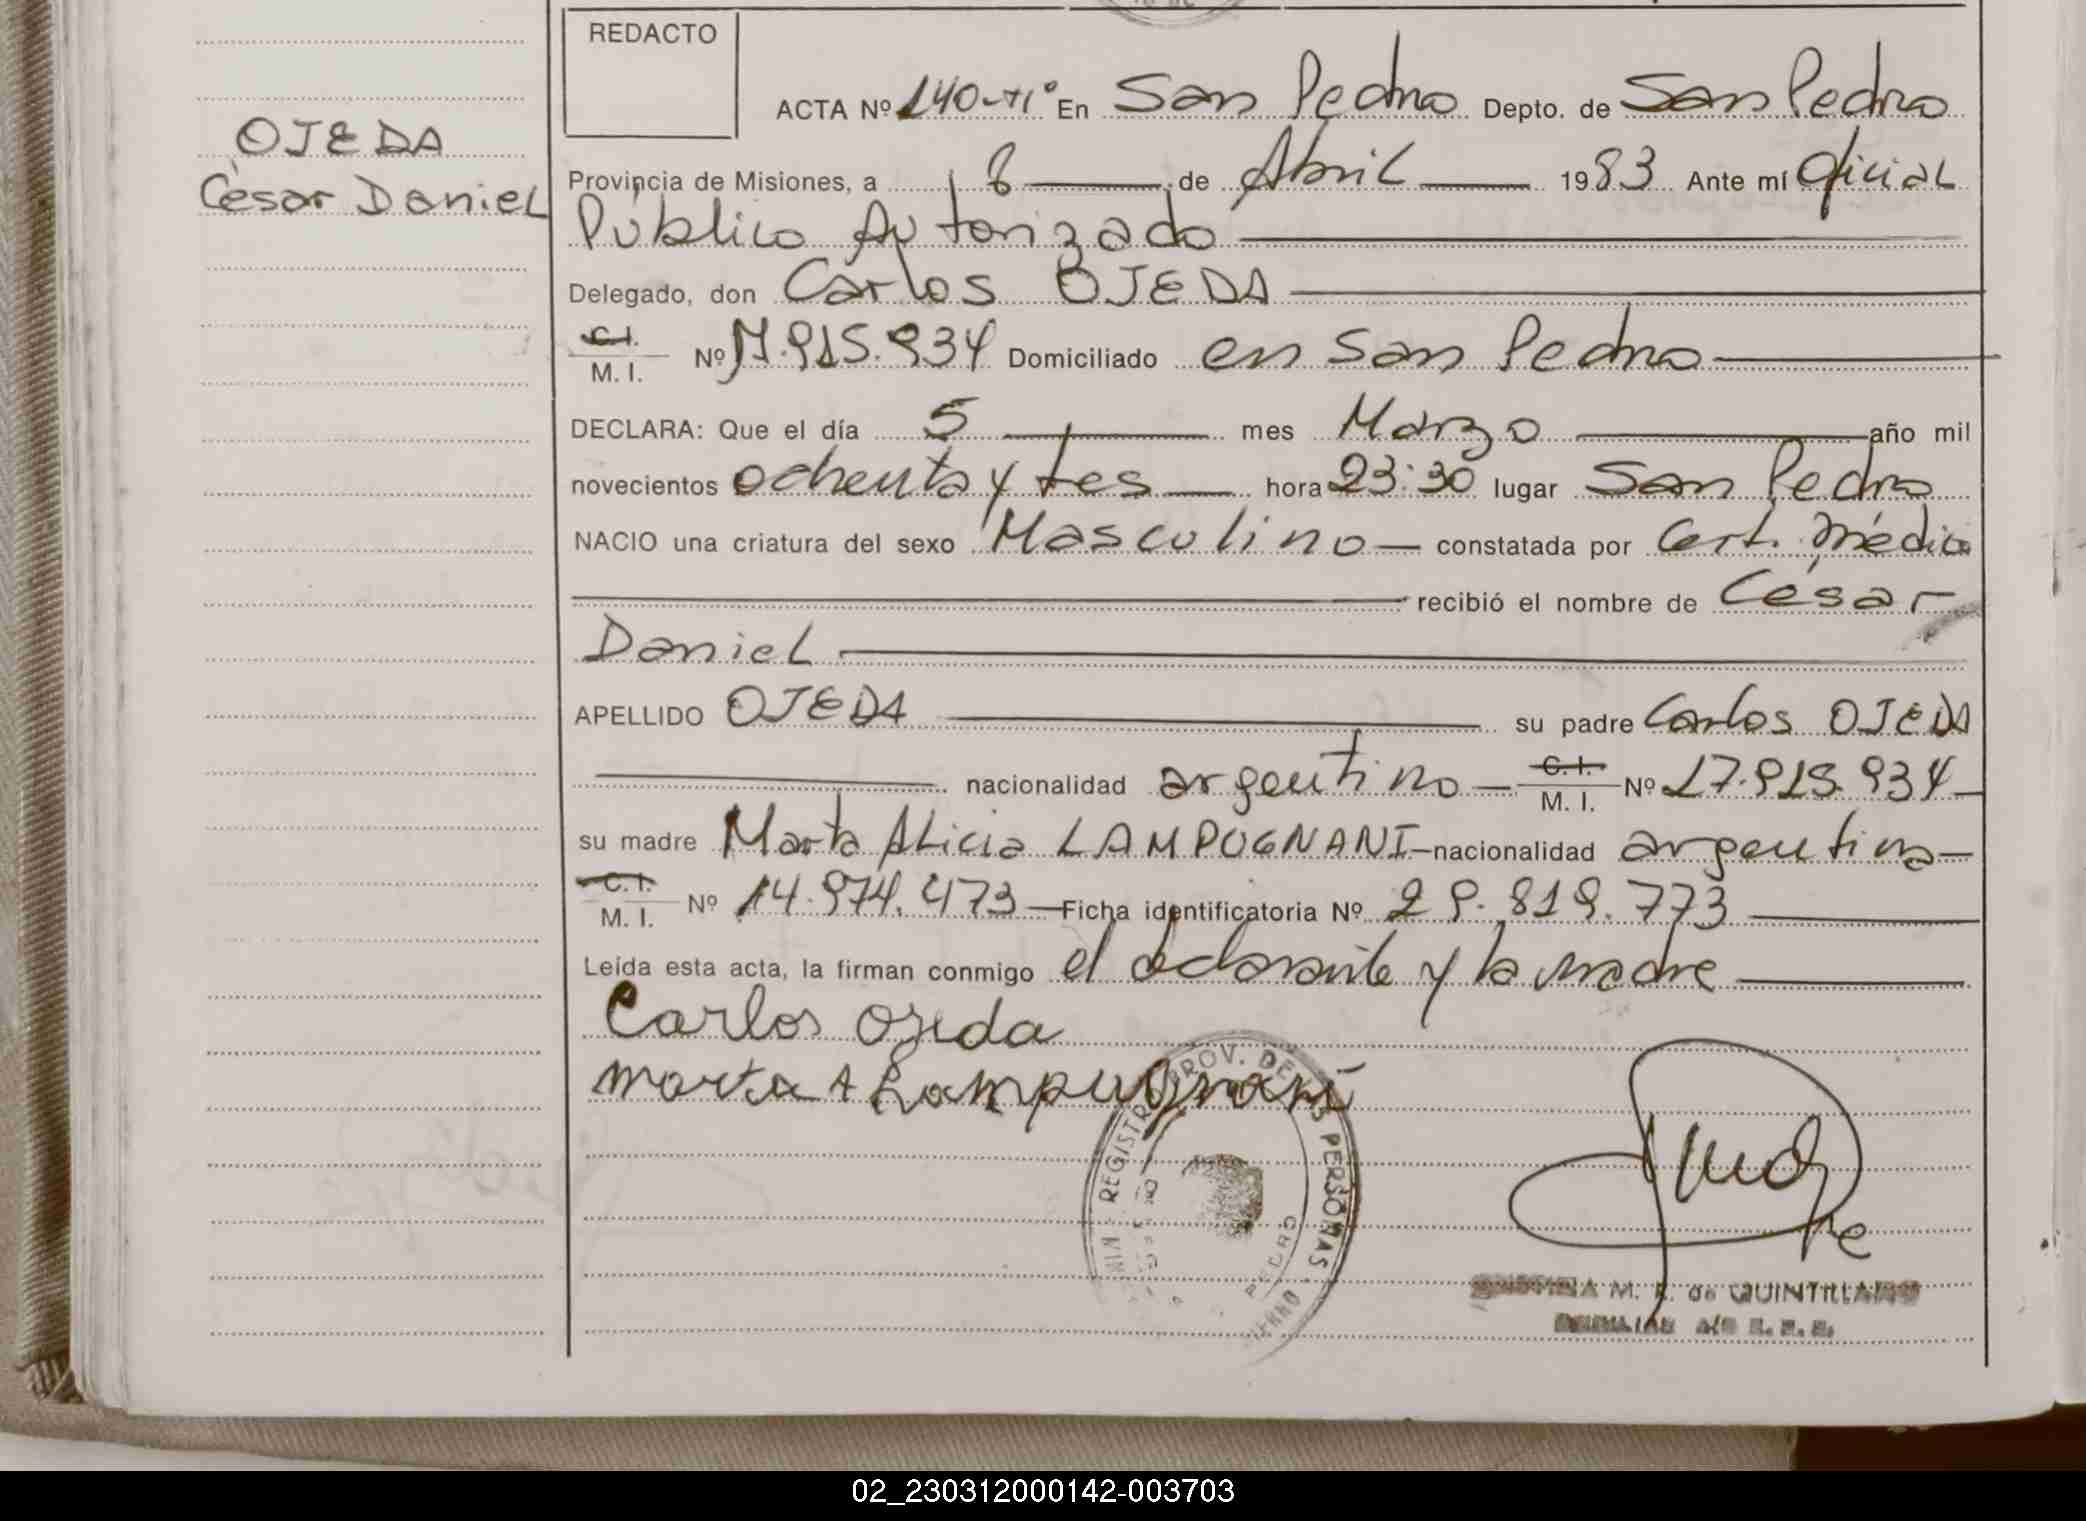 REDACTO
ACTA Nº 140-Tº En San Pedro Depto. de San Pedro
OJEDA
César Daniel
Provincia de Misiones, a 8 de Abril 1983 Ante mí Oficial
Público Autorizado
Delegado, don Carlos OJEDA
C.I.
M. I. Nº 17.915.934 Domiciliado en San Pedro
DECLARA: Que el día 5 mes Marzo año mil
novecientos ochenta y tres hora 23:30 lugar San Pedro
NACIO una criatura del sexo Masculino constatada por Cert. médico
recibió el nombre de César
Daniel
APELLIDO OJEDA su padre Carlos OJEDA
nacionalidad argentino C.I. M. I. Nº 17.915.934
su madre Marta Alicia LAMPUGNANI nacionalidad argentina
C.I.
M. I. Nº 14.974.473 Ficha identificatoria Nº 29.819.773
Leída esta acta, la firman conmigo el declarante y la madre
Carlos Ojeda
Marta A Lampugnani
REGISTRO PROV. DE LAS PERSONAS
PEDRO
M. de QUINTILLANO
02_230312000142-003703